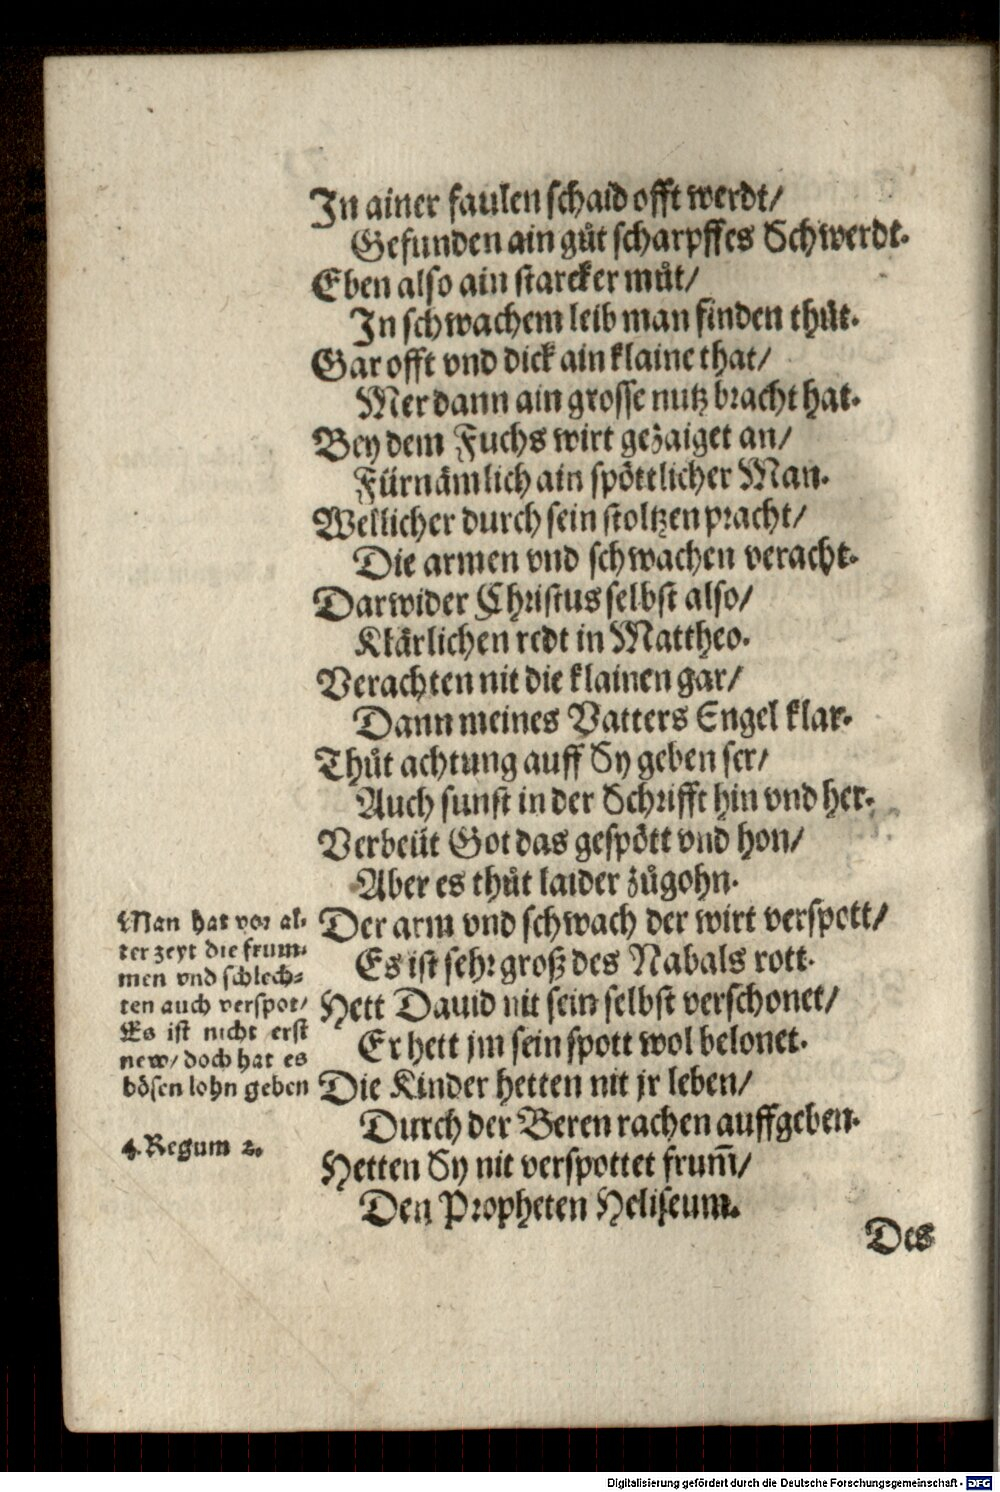 In ainer faulen schaid offt werdt/
Gefunden ain gůt scharpffes Schwerdt.
Eben also ain starcker můt/
In schwachem leib man finden thůt.
Gar offt vnd dick ain klaine that/
Mer dann ain grosse nutz bracht hat.
Bey dem Fuchs wirt gezaiget an/
Fürnämlich ain spöttlicher Man.
Wellicher durch sein stoltzen pracht/
Die armen vnd schwachen veracht.
Darwider Christus selbst also/
Klärlichen redt in Mattheo.
Verachten nit die klainen gar/
Dann meines Vatters Engel klar.
Thůt achtung auff Sy geben ser/
Auch sunst in der Schrifft hin vnd her.
Verbeüt Got das gespött vnd hon/
Aber es thůt laider zůgohn.
Der arm vnd schwach der wirt verspott/
Es ist sehr groß des Nabals rott.
Hett Dauid nit sein selbst verschonet/
Er hett jm sein spott wol belonet.
Die Kinder hetten nit jr leben/
Durch der Beren rachen auffgeben.
Hetten Sy nit verspottet frum̄/
Den Propheten Heliseum.
Des
Man hat vor al-
ter zeyt die frum-
men vnd schlech-
ten auch verspot/
Es ist nicht erst
new/ doch hat es
bösen lohn geben
4. Regum 2.
Digitalisierung gefördert durch die Deutsche Forschungsgemeinschaft - DFG